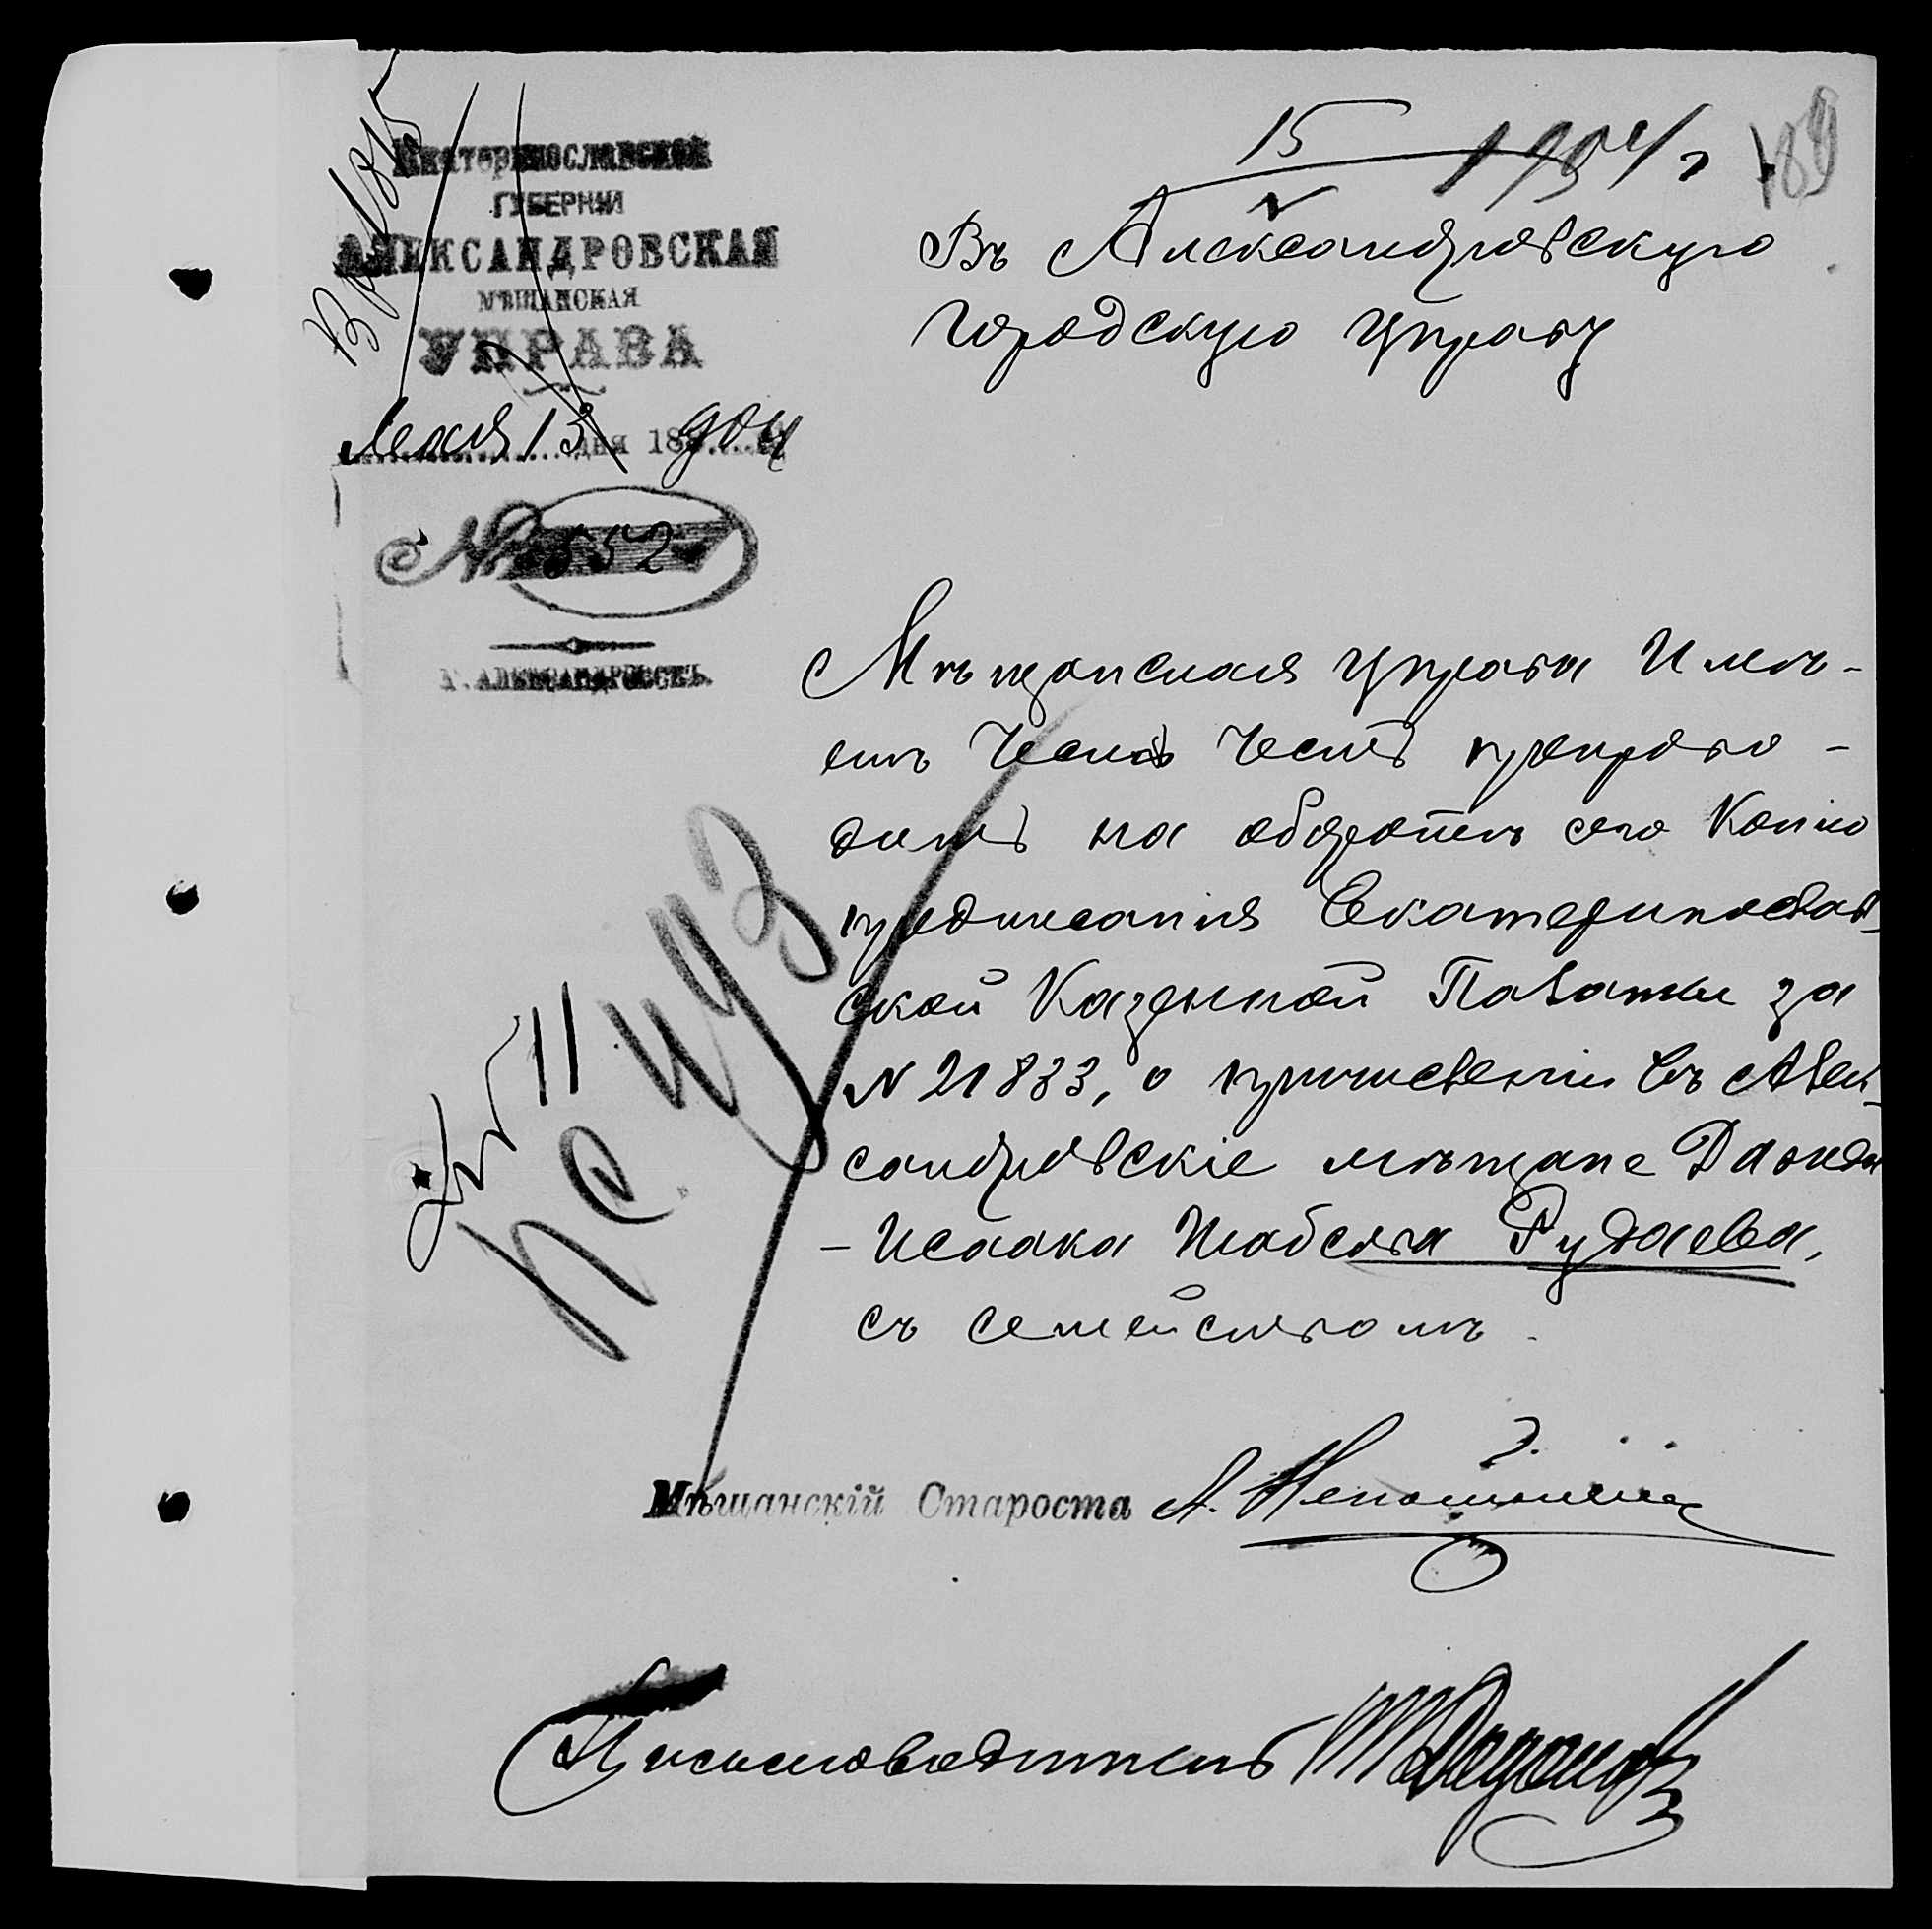 15
V 1904 г
189
Екатеринославской
ГУБЕРНІИ
АЛЕКСАНДРОВСКАЯ
МѢЩАНСКАЯ
УПРАВА
Мая 13 дня 1904
№ 552
Г. АЛЕКСАНДРОВСКЪ.
Въ Александровскую
Городскую Управу
Мѣщанская Управа Имѣ-
етъ Честь Честь препрово-
дить на оборотѣ сего Копію
предписанія Екатеринослав-
ской Казенной Палаты за
№ 21833, о причисленіи въ Алек-
сандровскіе мѣщане Давида
- Исаака Шабсова Рудаева,
съ семействомъ.
Мѣщанскій Староста А.
Письмоводитель